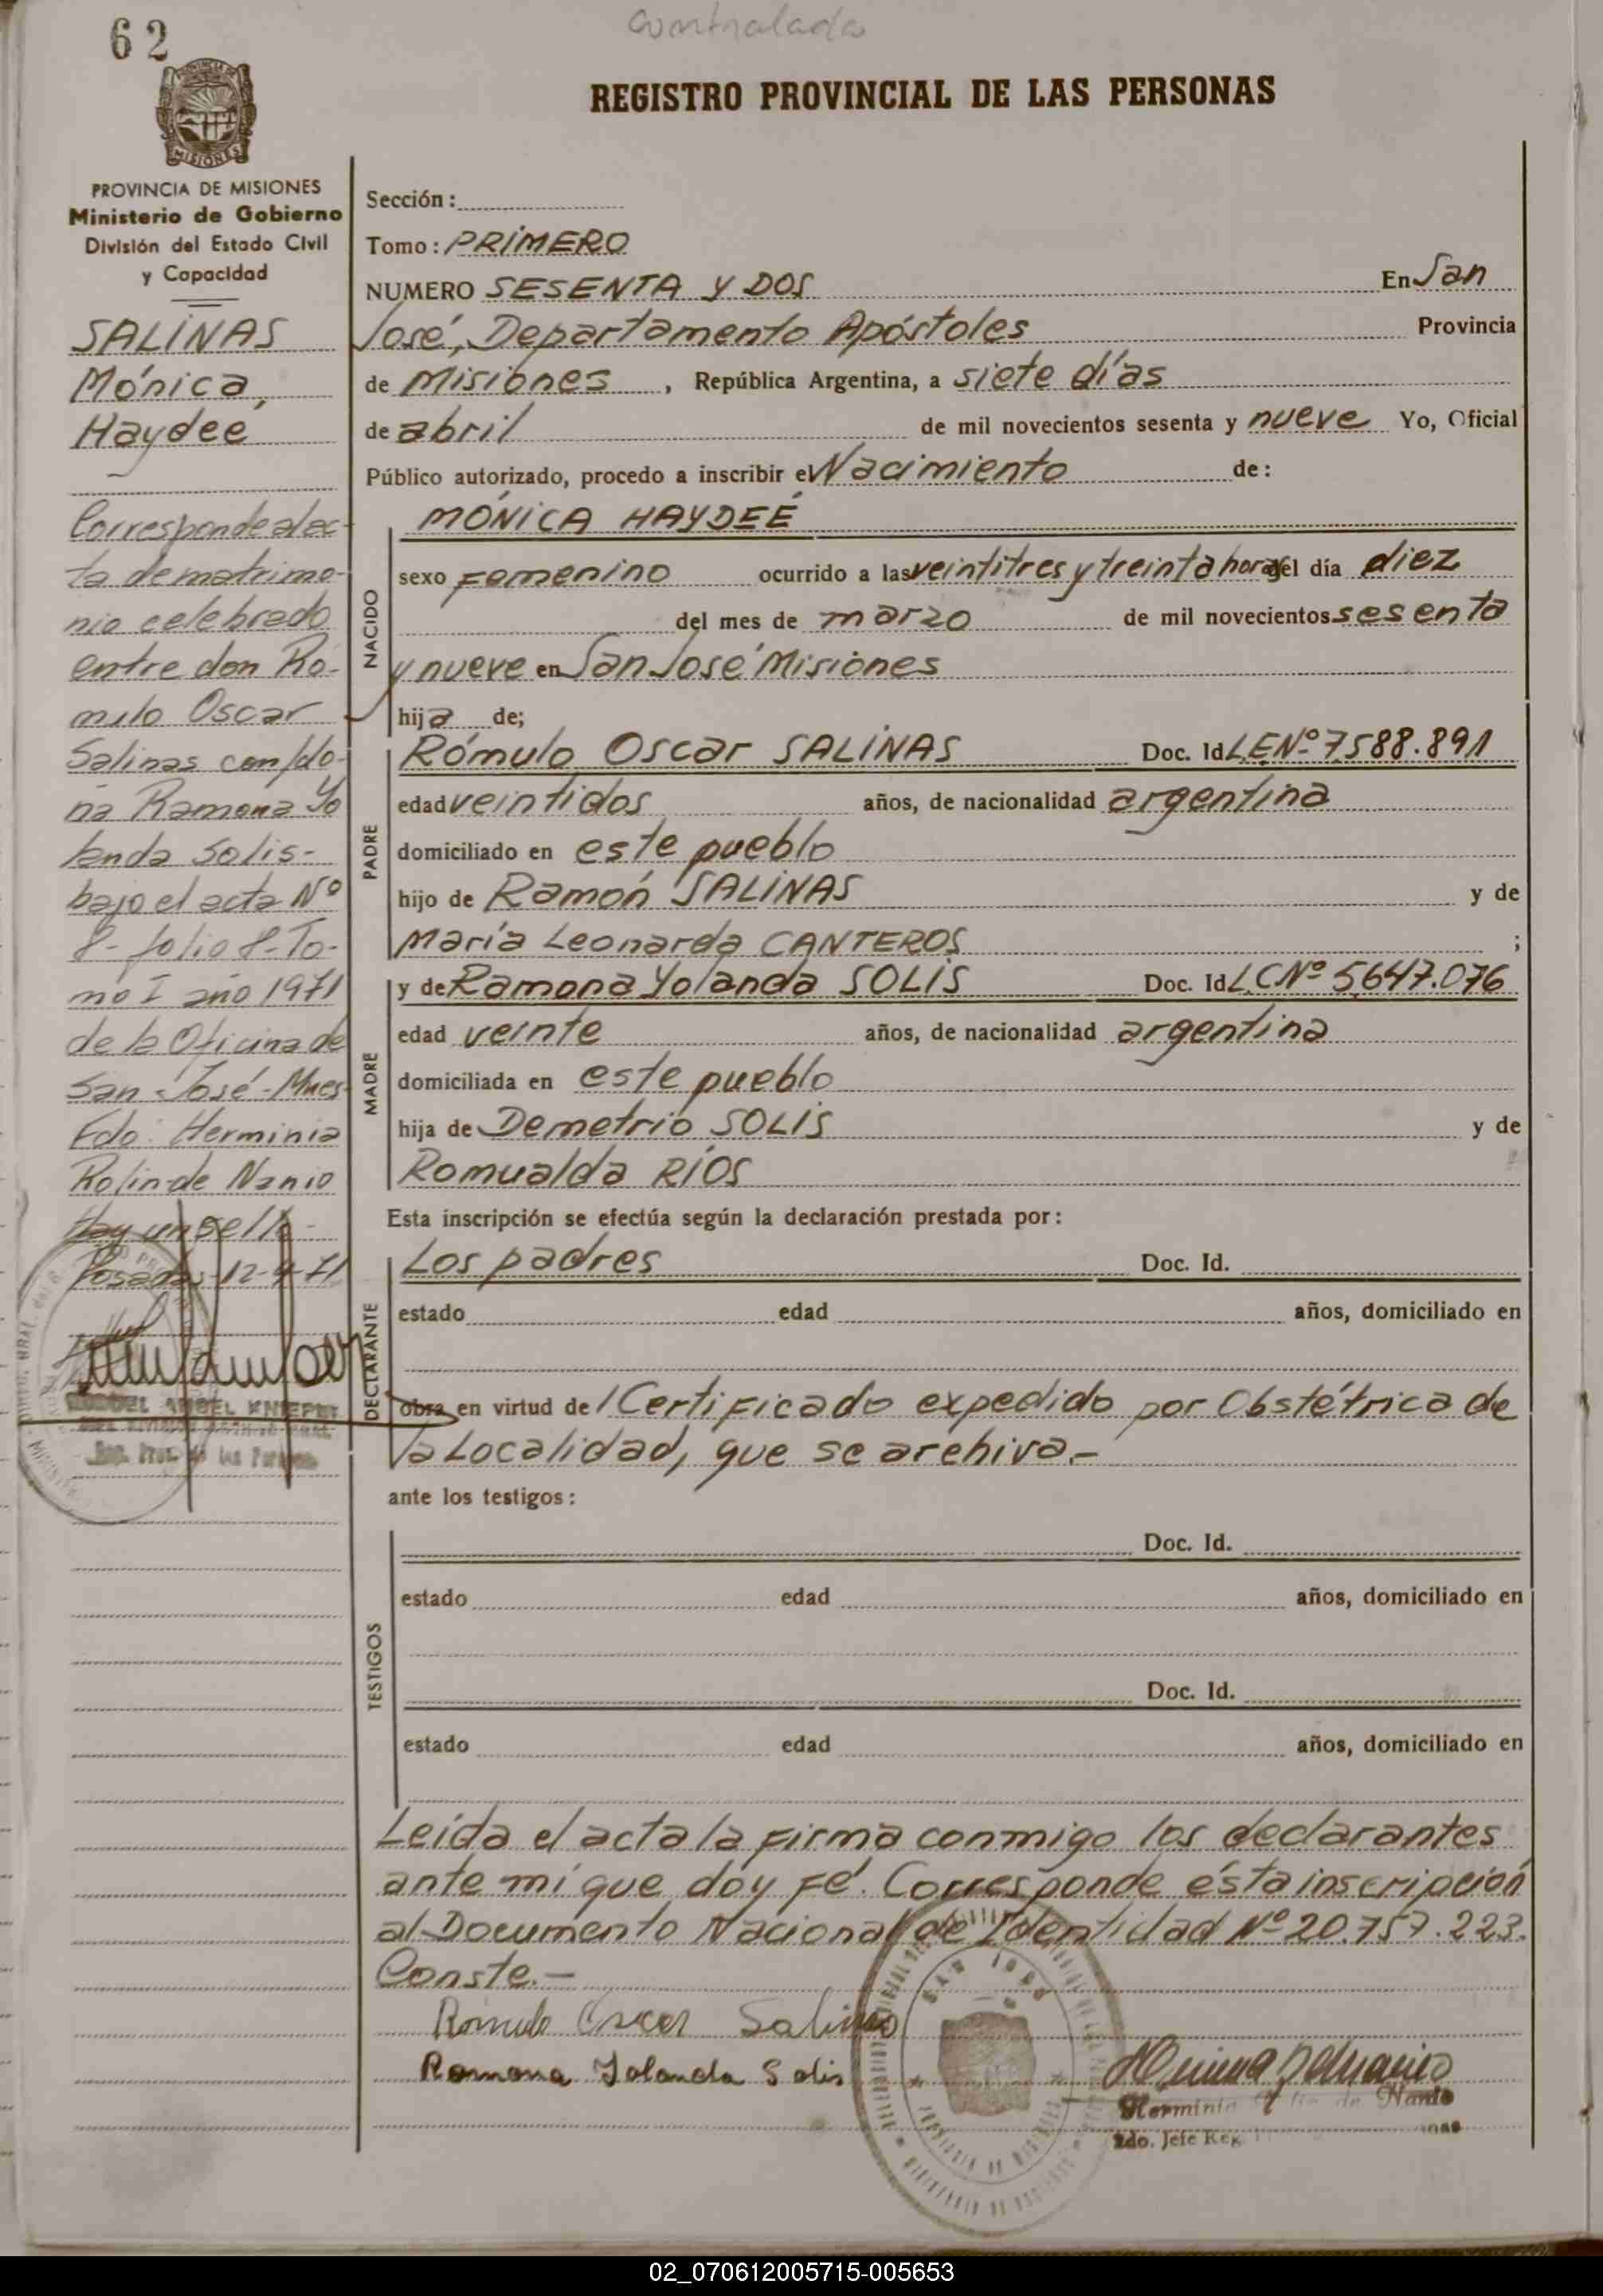 62
controlado
REGISTRO PROVINCIAL DE LAS PERSONAS
MISIONES
PROVINCIA DE MISIONES
Ministerio de Gobierno
División del Estado Civil
y Capacidad
SALINAS
Mónica,
Haydeé
Corresponde al ac-
ta de matrimo-
nio celebrado
entre don Ró-
mulo Oscar
Salinas con do-
ña Ramona Yo
landa Solis-
bajo el acta Nº
8- folio 8-To-
mo I año 1971
de la Oficina de
San José-Mnes-
Fdo: Herminia
Rolin de Nanio
Hay un sello-
Posadas 12-4-71
Sección:
Tomo: PRIMERO
NUMERO SESENTA Y DOS En San
José, Departamento Apóstoles Provincia
de Misiones, República Argentina, a siete días
de abril de mil novecientos sesenta y nueve Yo, Oficial
Público autorizado, procedo a inscribir el Nacimiento de:
NACIDO
MÓNICA HAYDEÉ
sexo Femenino ocurrido a las veintitres y treinta horas del día diez
del mes de marzo de mil novecientos sesenta
y nueve en San José Misiones
hija de;
PADRE
Rómulo Oscar SALINAS Doc. Id L.E.Nº 7.588.891
edad veintidos años, de nacionalidad argentina
domiciliado en este pueblo
hijo de Ramón SALINAS y de
María Leonarda CANTEROS ;
MADRE
y de Ramona Yolanda SOLIS Doc. Id L.C.Nº 5.647.076
edad veinte años, de nacionalidad argentina
domiciliada en este pueblo
hija de Demetrio SOLIS y de
Romualda RÍOS
Esta inscripción se efectúa según la declaración prestada por:
DECLARANTE
Los padres Doc. Id.
estado edad años, domiciliado en
obra en virtud de 1 Certificado expedido por Obstétrica de
la Localidad, que se archiva.-
ante los testigos:
TESTIGOS
Doc. Id.
estado edad años, domiciliado en
Doc. Id.
estado edad años, domiciliado en
Leída el acta la firma conmigo los declarantes
ante mí que doy fé. Corresponde ésta inscripción
al Documento Nacional de Identidad Nº 20.757.223.
Conste.-
Rómulo Oscar Salinas
Ramona Yolanda Solis
Herminia de Nanio
2do. Jefe Reg.
SAN JOSE
02_070612005715-005653